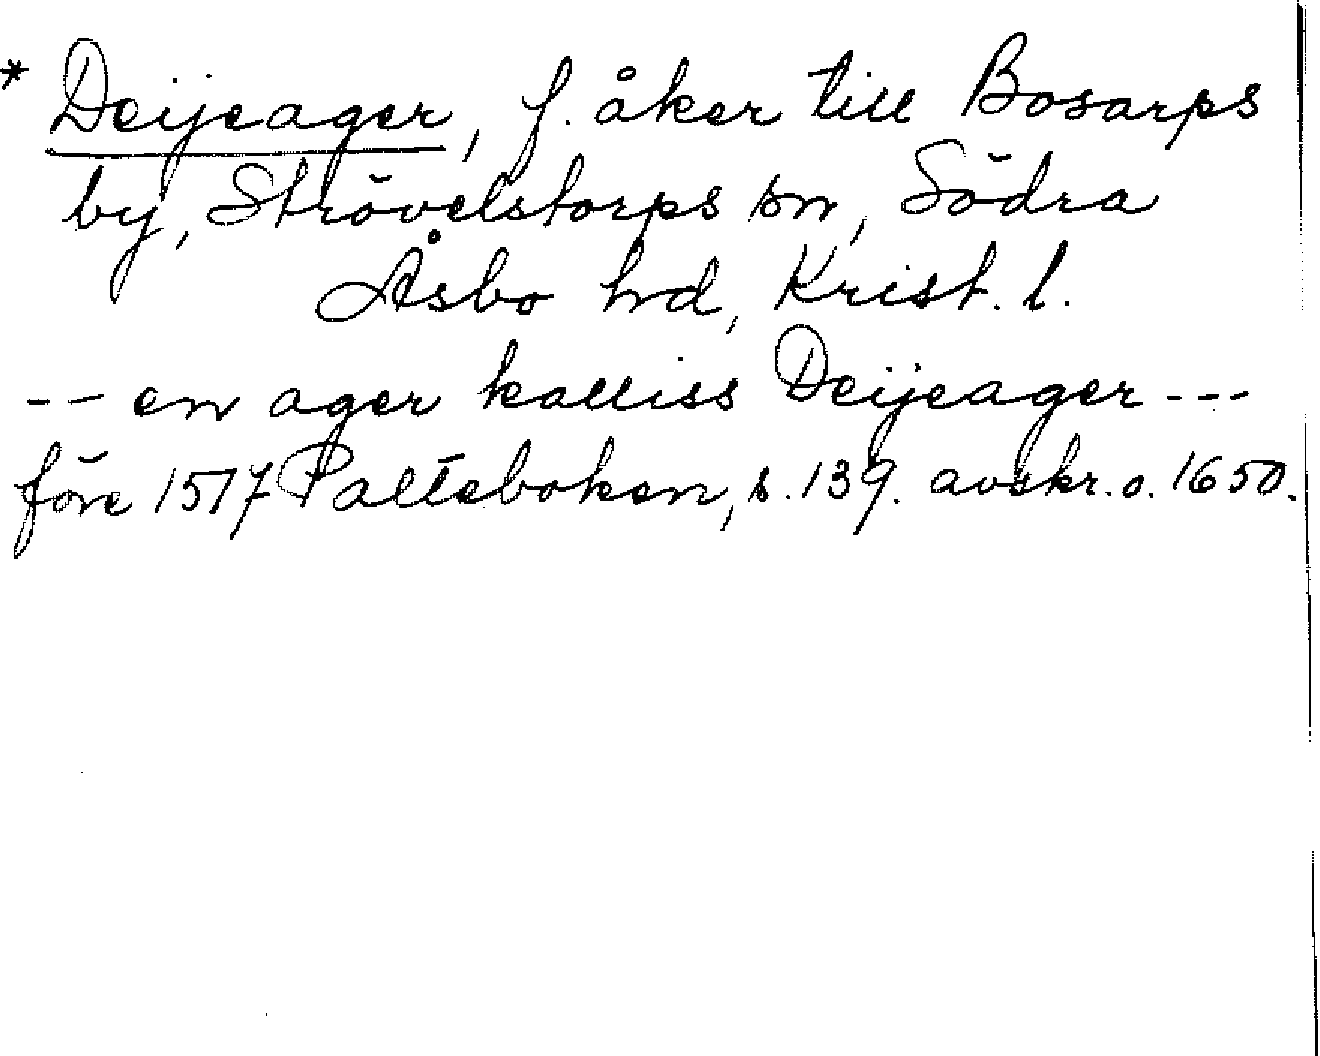 * Deijeager, f. åker till Bosarps
by, Strövelstorps sn, Södra
Åsbo hd, Krist. l.
-- en ager kalliss Deijeager ---
före 1517 Palteboken, s. 139. avskr. o. 1650.